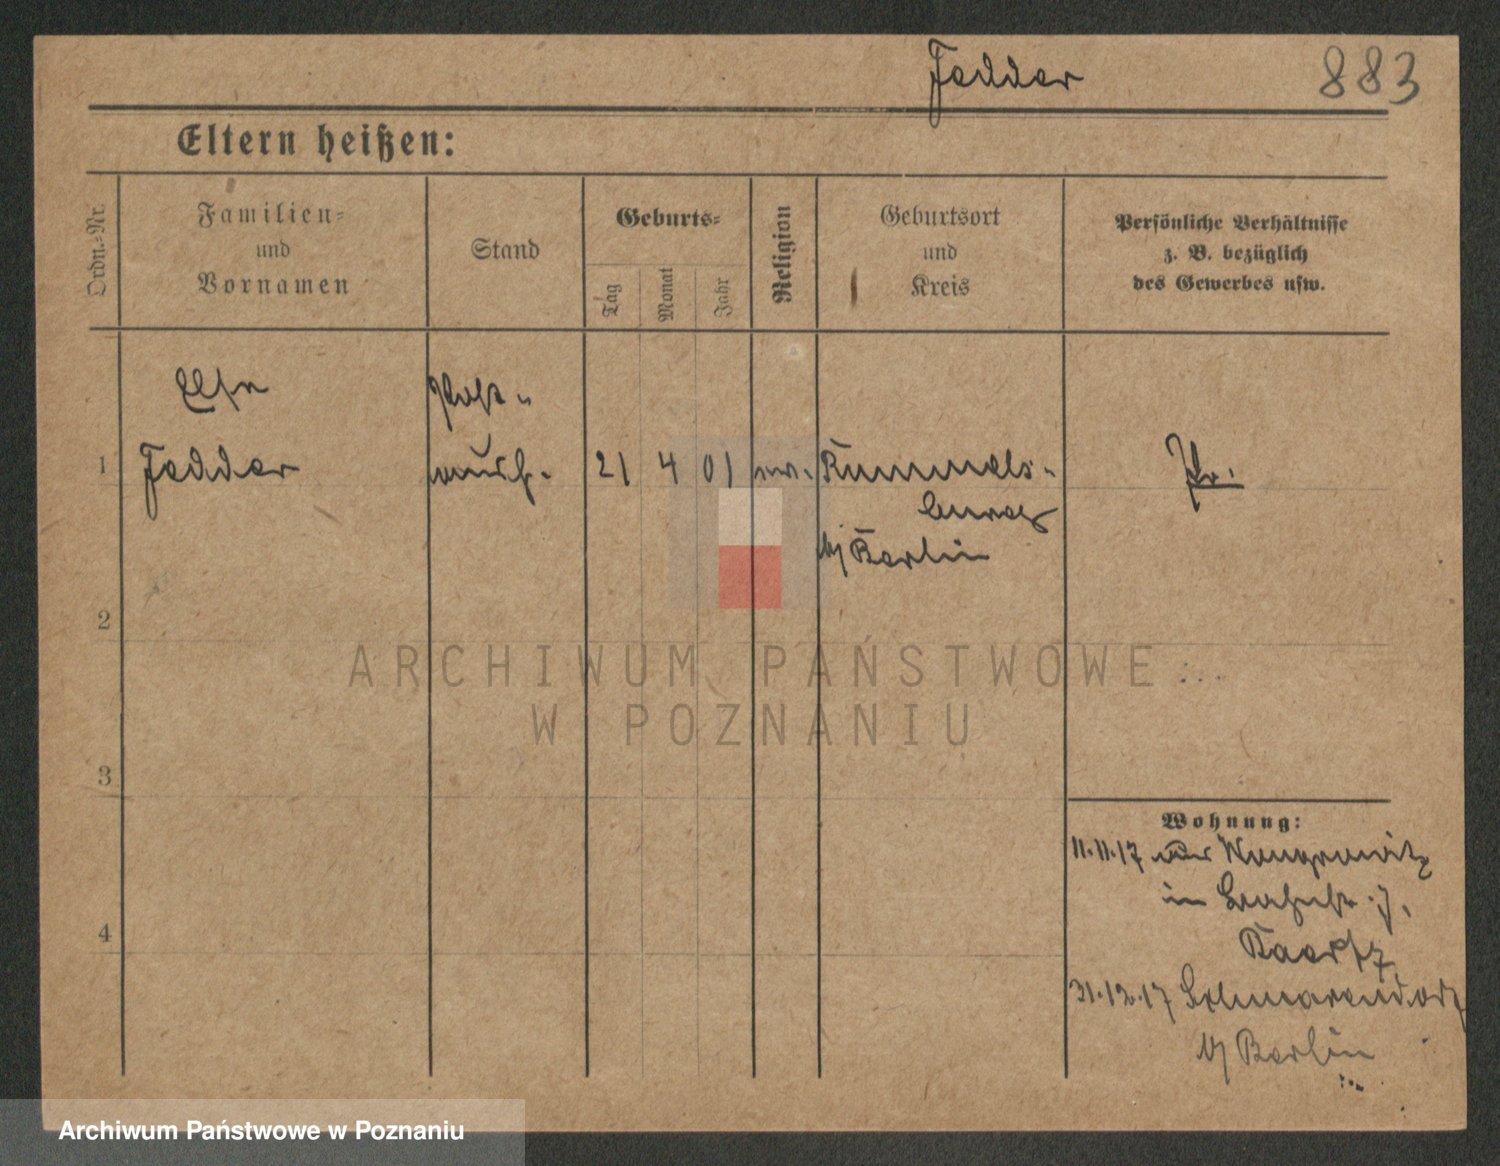 Fedder
883
Eltern heißen:
Ordn.-Nr.
Familien-
und
Vornamen
Stand
Geburts-
Tag
Monat
Jahr
Religion
Geburtsort
und
Kreis
Persönliche Verhältnisse
z. B. bezüglich
des Gewerbes usw.
Else
Post-
1 Fedder aush. 21 4 01 ev. Rummels-
burg
b/ Berlin
Pr.
2
3
4
Wohnung:
11.11.17 aus Wongrowitz
in
31.12.17 Schmargendorf
b/ Berlin
ARCHIWUM PAŃSTWOWE
W POZNANIU
Archiwum Państwowe w Poznaniu